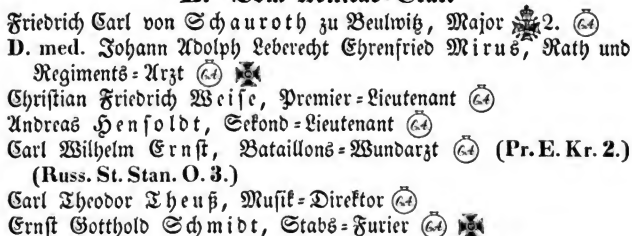 Friedrich Carl von Schauroth zu Beulwitz, Major 2.
D. med. Johann Adolph Leberecht Ehrenfried Mirus, Rath und
Regiments-Arzt
Christian Friedrich Weise, Premier-Lieutenant
Andreas Hensoldt, Sekond-Lieutenant
Carl Wilhelm Ernst, Bataillons-Wundarzt (Pr. E. Kr. 2.)
(Russ. St. Stan. O. 3.)
Carl Theodor Theuß, Musik-Direktor
Ernst Gotthold Schmidt, Stabs-Furier